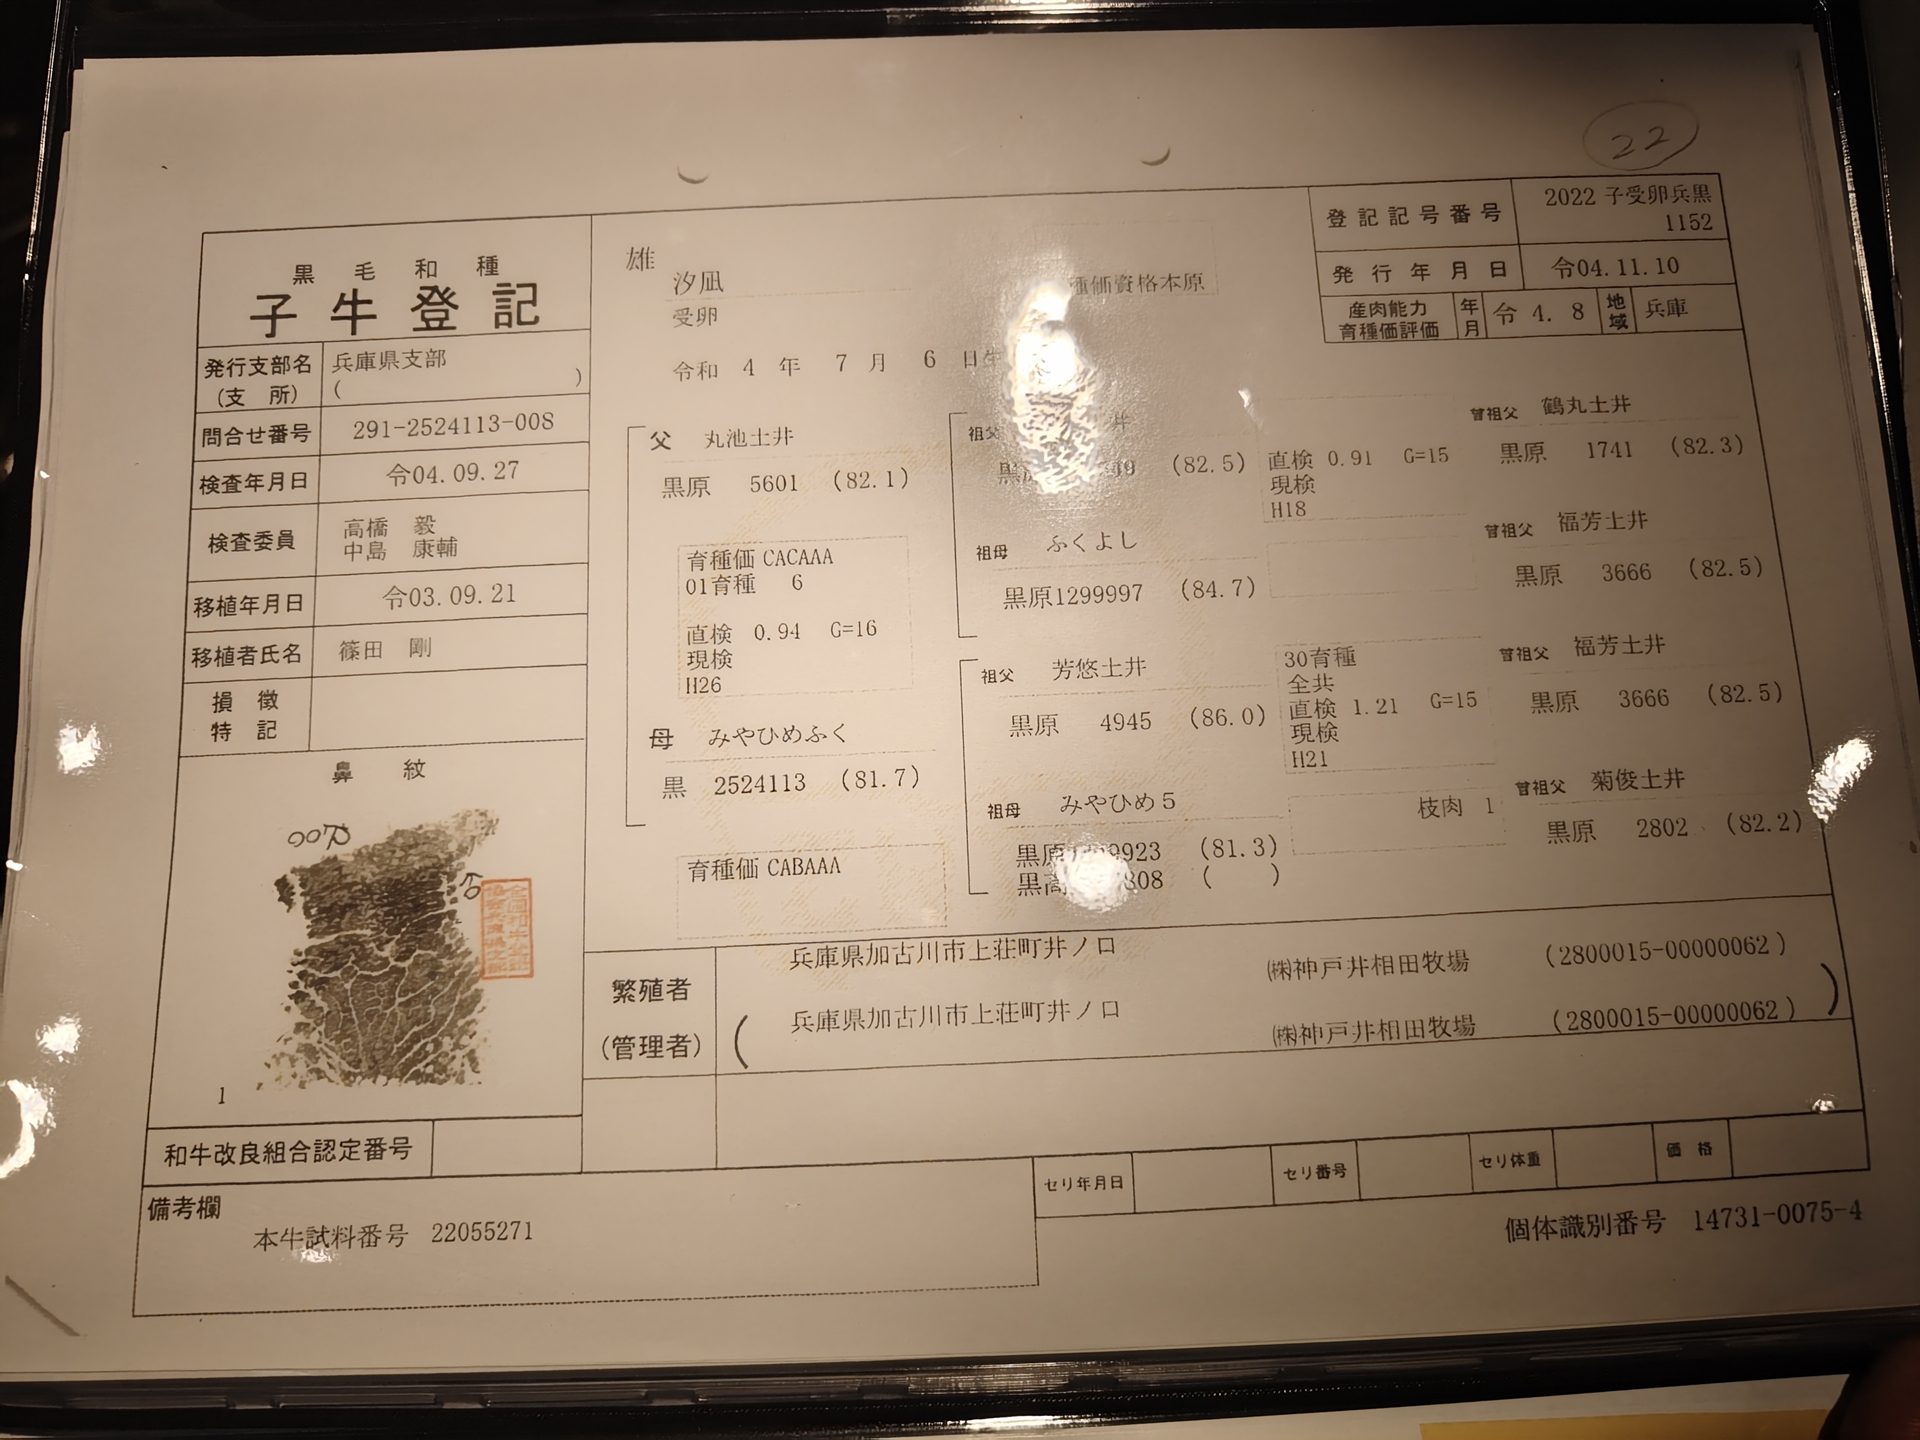 22
黒毛和種
子牛登記
発行支部名 兵庫県支部
(支所) ( )
問合せ番号 291-2524113-008
検査年月日 令04.09.27
検査委員 高橋 毅
中島 康輔
移植年月日 令03.09.21
移植者氏名 篠田 剛
損徴
特記
鼻紋
1
和牛改良組合認定番号
雄
汐凪
受卵
種価資格本原
令和 4 年 7 月 6 日生
登記記号番号 2022 子受卵兵黒
1152
発行年月日 令04.11.10
産肉能力
育種価評価 年月 令 4. 8 地域 兵庫
父 丸池土井
黒原 5601 (82.1)
育種価 CACAAA
01育種 6
直検 0.94 G=16
現検
H26
母 みやひめふく
黒 2524113 (81.7)
育種価 CABAAA
祖父 井
(82.5)
直検 0.91 G=15
現検
H18
祖母 ふくよし
黒原1299997 (84.7)
祖父 芳悠土井
黒原 4945 (86.0)
30育種
全共
直検 1.21 G=15
現検
H21
祖母 みやひめ5
黒原 923 (81.3)
黒高 808 ( )
枝肉 1
曾祖父 鶴丸土井
黒原 1741 (82.3)
曾祖父 福芳土井
黒原 3666 (82.5)
曾祖父 福芳土井
黒原 3666 (82.5)
曾祖父 菊俊土井
黒原 2802 (82.2)
繁殖者 兵庫県加古川市上荘町井ノ口 ㈱神戸井相田牧場 (2800015-00000062)
(管理者) (兵庫県加古川市上荘町井ノ口 ㈱神戸井相田牧場 (2800015-00000062))
セリ年月日 セリ番号 セリ体重 価格
備考欄
本牛試料番号 22055271
個体識別番号 14731-0075-4